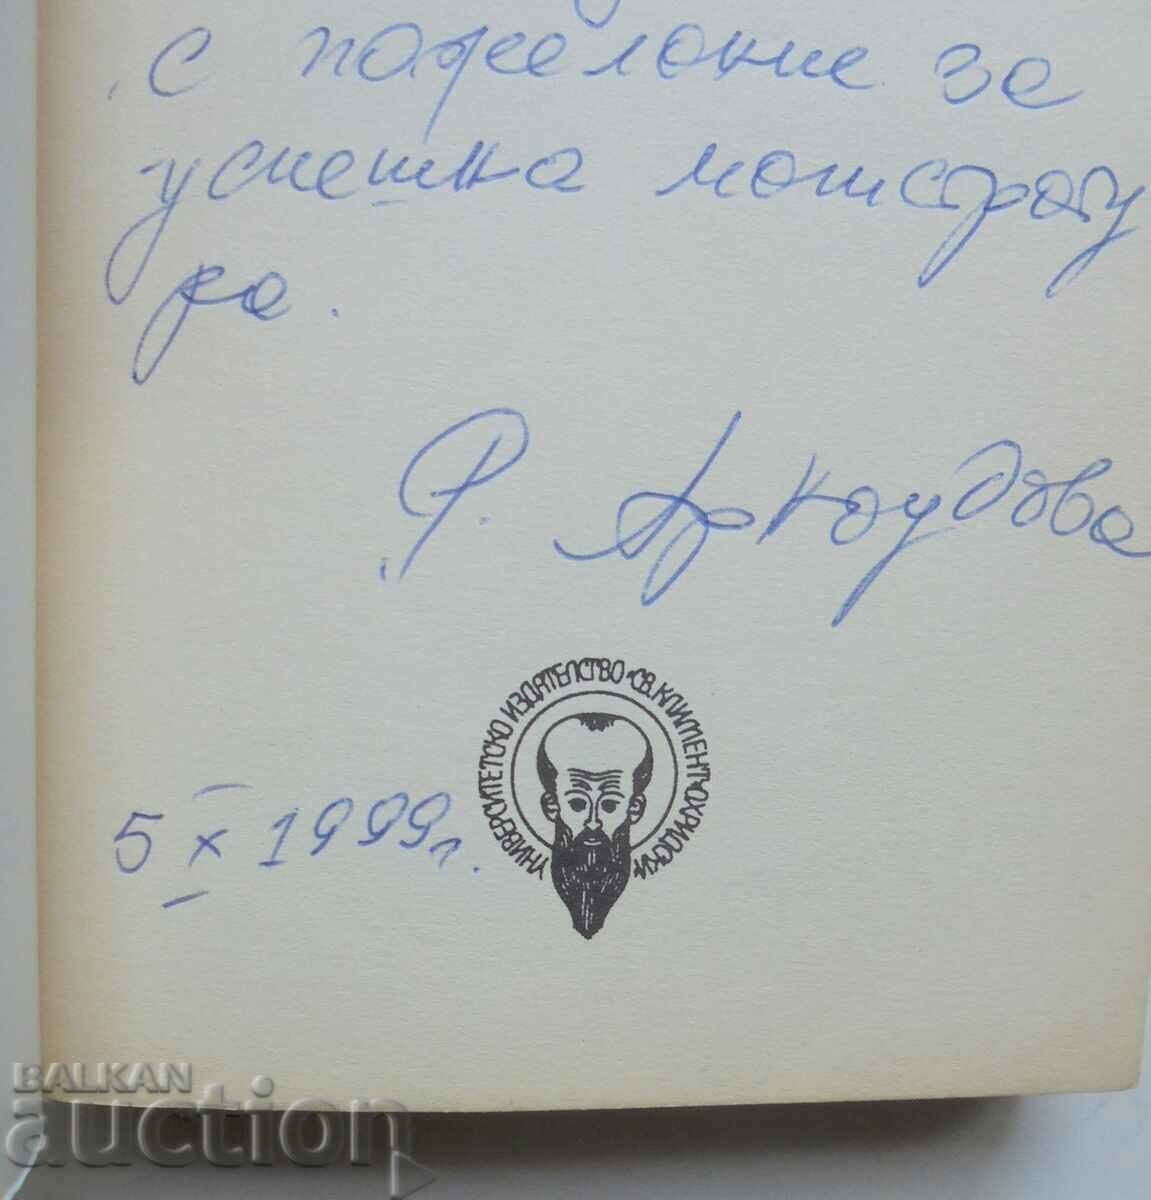 с пожелание за
успешна магистрату
ра.
Р. Аркоудова
УНИВЕРСИТЕТСКО ИЗДАТЕЛСТВО "СВ. КЛИМЕНТ ОХРИДСКИ"
5 X 1999 г.
BALKAN
auction